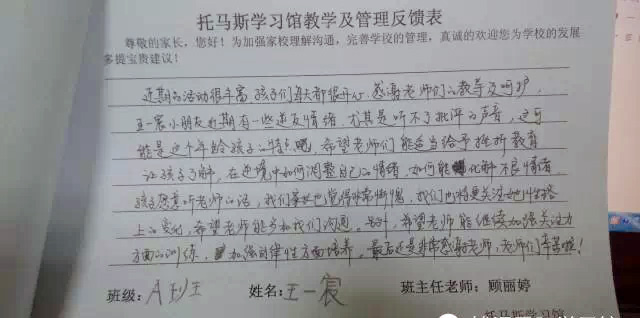 托马斯学习馆教学及管理反馈表
尊敬的家长，您好！为加强家校理解沟通，完善学校的管理，真诚的欢迎您为学校的发展
多提宝贵建议！
近期的活动很丰富，孩子们每天都很开心，感谢老师们的教导及呵护，
王一宸小朋友近期有一些逆反情绪，尤其是听不了批评的声音，这可
能是这个年龄孩子的特点吧，希望老师们能适当给予挫折教育
让孩子了解，在逆境中如何调整自己的情绪，如何能化解不良情绪，
孩子愿意听老师的话，我们家长也觉得非常惭愧，我们也将更关注她性格
上的变化，希望老师能多和我们沟通。另外，希望老师能继续加强关注力
方面的训练，加强自律性方面培养，最后还是非常感谢老师，老师们辛苦啦！
班级：A班 姓名：王一宸 班主任老师：顾丽婷
托马斯学习馆